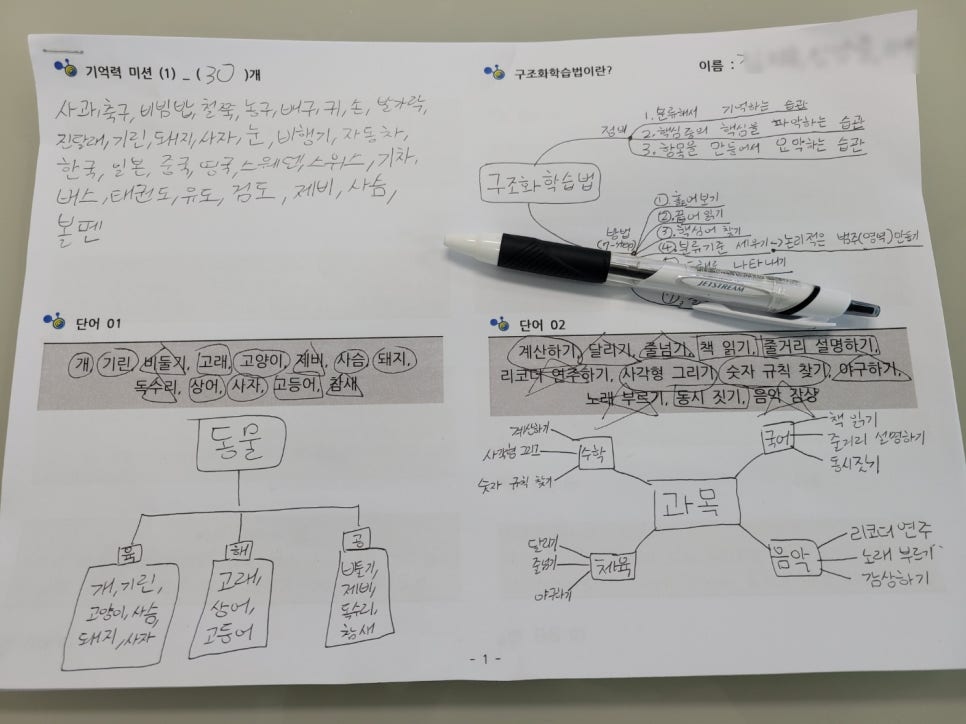 기억력 미션 (1) _ (30)개
사과, 축구, 비빔밥, 철쭉, 농구, 배구, 귀, 손, 발가락,
진달래, 기린, 돼지, 사자, 눈, 비행기, 자동차,
한국, 일본, 중국, 영국, 스웨덴, 스위스, 기차,
버스, 태권도, 유도, 검도, 제비, 사슴,
볼펜
구조화학습법이란?
이름 :
구조화 학습법
정의
1. 분류해서 기억하는 습관
2. 핵심중의 핵심을 파악하는 습관
3. 항목을 만들어서 요약하는 습관
방법
(7-step)
① 훑어보기
② 끊어 읽기
③ 핵심어 찾기
④ 분류기준 세우기 → 논리적은 범주(영역)만들기
나타내기
JETSTREAM
단어 01
개, 기린, 비둘기, 고래, 고양이, 제비, 사슴, 돼지,
독수리, 상어, 사자, 고등어, 참새
동물
육
개, 기린,
고양이, 사슴,
돼지, 사자
해
고래,
상어,
고등어
공
비둘기,
제비,
독수리,
참새
단어 02
계산하기, 달리기, 줄넘기, 책 읽기, 줄거리 설명하기,
리코더 연주하기, 사각형 그리기, 숫자 규칙 찾기, 야구하기,
노래 부르기, 동시 짓기, 음악 감상
과목
수학
계산하기
사각형
숫자 규칙 찾기
국어
책 읽기
줄거리 설명하기
동시짓기
체육
달리기
줄넘기
야구하기
음악
리코더 연주
노래 부르기
감상하기
- 1 -